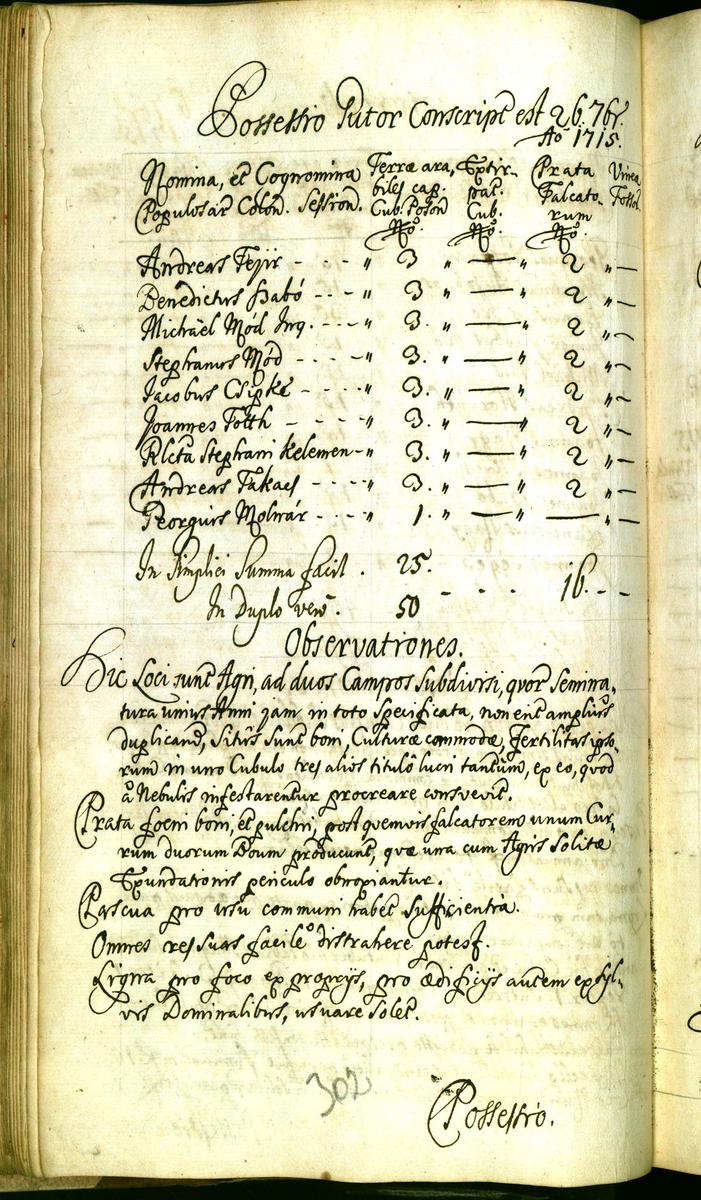 Possessio Putor Conscript est 26. 7br.
Ao 1715.
Nomina, et Cognomina Terræ ara, Extir- Prata Vinea
Populosar Colon. Session. biles cap. pat. Falcato- Fossor.
Cub. Poson Cub. rum
No. No. No.
Andreas Fejir - - - - " 3 " — " 2 " —
Benedictus Szabó - - - " 3 " — " 2 " —
Michael Mód Ing. - - - - " 3. " — 2 " —
Stephanus Mód - - - - " 3. " — " 2 " —
Jacobus Csipke - - - - " 3. " — " 2 " —
Joannes Totth - - - - " 3. " — " 2 " —
Rlcta Stephani Kelemen - " 3. " — " 2 " —
Andreas Takacs - - - " 3. " — " 2 " —
Georgius Molnár - - - " 1. " — " — " —
In Simplici Summa facit . 25. - - - 16. - -
In Duplo vero. 50
Observationes.
Hic Loci sunt Agri, ad duos Campos subdivisi, quor Semina-
tura unius Anni jam in toto specificata, non erit amplius
duplicand, Situs sunt boni, Culturæ commodæ, Fertilitas ipso-
rum in uno Cubulo tres alios titulo lucri tantum, ex eo, quod
à Nebulis infestarentur procreare consvevit.
Prata foeni boni, et pulchri, post quemvis falcatorem unum Cur-
rum duorum Boum producunt, quæ una cum Agris Solitæ
Exundationis periculo obnoxiantur.
Pascua pro usu communi habet sufficientia.
Omnes res suas facile distrahere potest.
Ligna pro foco ex propriis, pro ædificijs autem ex syl-
vis Dominalibus, usuare solet.
302
Possessio.